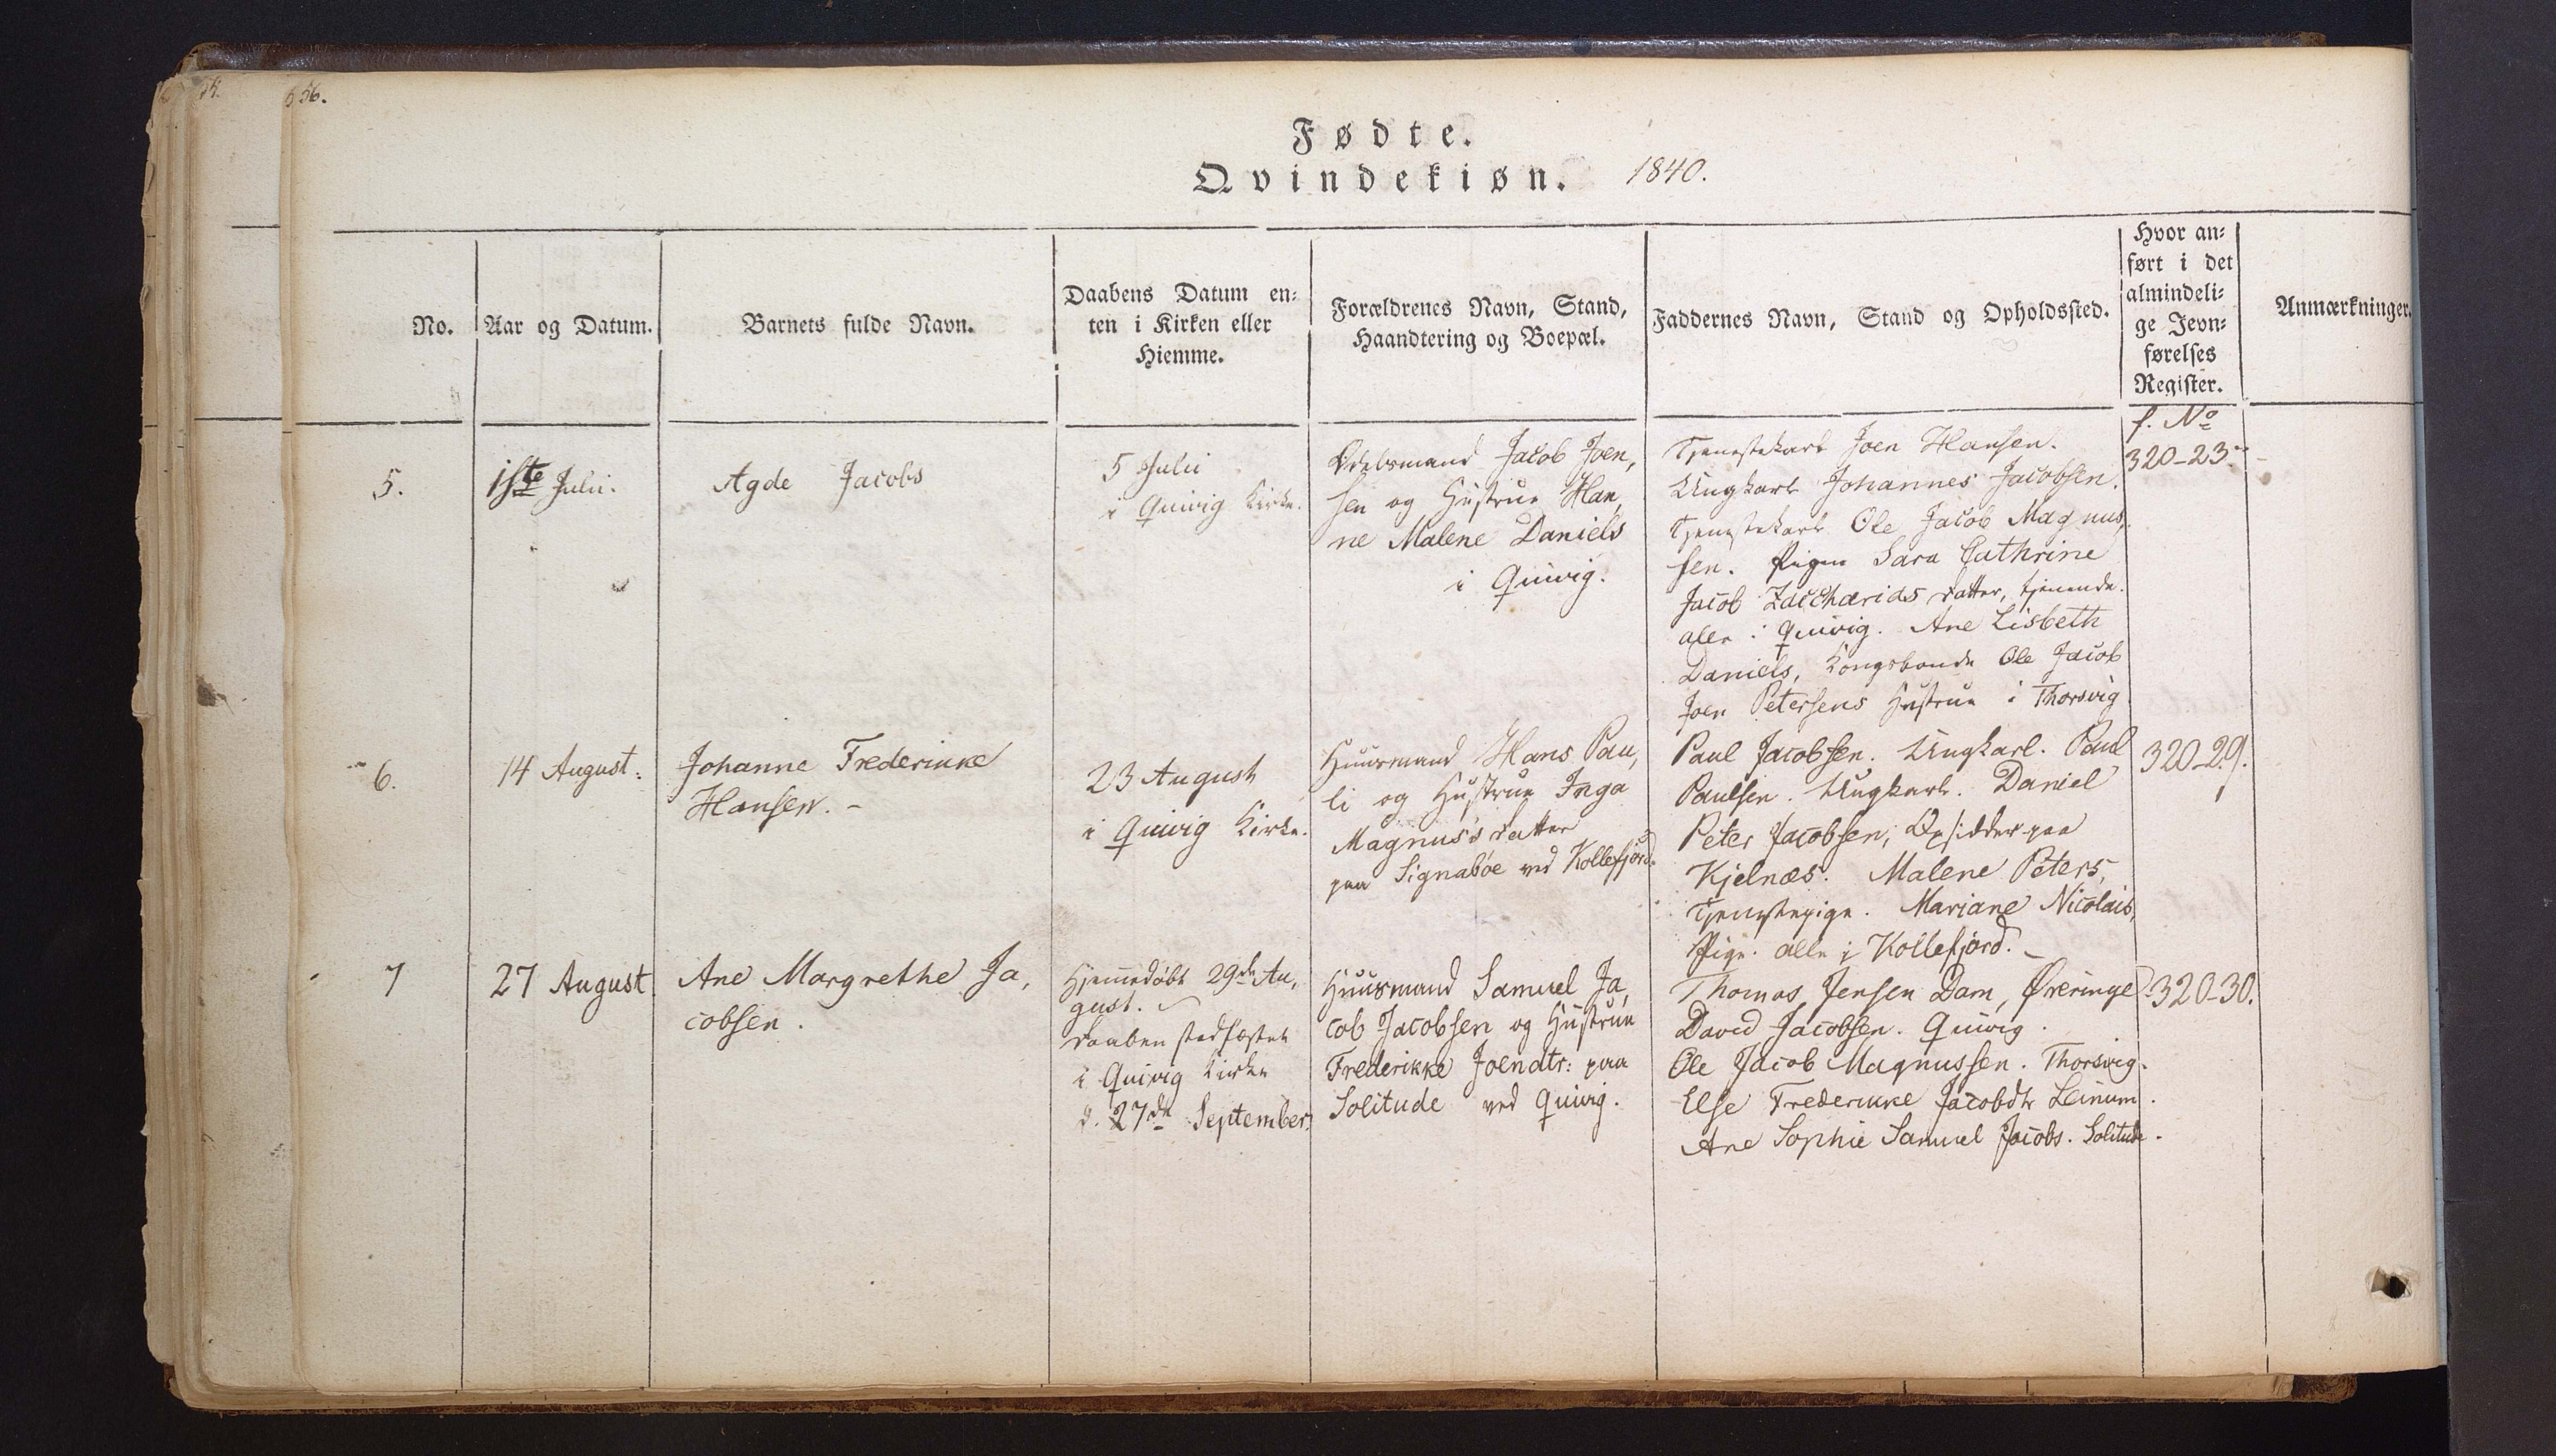 56.
Fødte.
Qvindekiøn. 1840.
No.
Aar og Datum.
Barnets fulde Navn.
Daabens Datum en-
ten i Kirken eller
Hiemme.
Forældrenes Navn, Stand,
Haandtering og Boepæl.
Faddernes Navn, Stand og Opholdssted.
Hvor an-
ført i det
almindeli-
ge Jevn-
førelses
Register.
Anmærkninger.
f. No
5.
1ste Julii.
Agde Jacobs
5 Julii
i Qvivig Kirke.
Odelsmand Jacob Joen,
sen og Hustrue Han,
ne Malene Daniels
i Qvivig.
Tjenestekarl Joen Hansen.
Ungkarl Johannes Jacobsen.
Tjenestekarl Ole Jacob Magnus,
sen. Pigen Sara Cathrine
Jacob Zacharias datter, tjenende
alle i Qvivig. Ane Lisbeth
Daniels, Kongsbonde Ole Jacob
Joen Petersens Hustrue i Thorsvig
320-23.
6.
14 August.
Johanne Frederikke
Hansen.-
23 August
i Qvivig Kirke.
Huusmand Hans Pau,
li og Hustrue Inga
Magnus's datter
paa Signabøe ved Kollefjord.
Paul Jacobsen. Ungkarl. Paul
Paulsen. Ungkarl. Daniel
Peter Jacobsen, Opsidder paa
Kjelnæs. Malene Peters,
Tjenestepige. Mariane Nicolais,
Pige. alle i Kollefjord.-
320-29.
7
27 August
Ane Margrethe Ja,
cobsen.
Hjemmedøbt 29de Au,
gust.
Daaben stadfæstet
i Qvivig Kirke
d. 27de September.
Huusmand Samuel Ja,
cob Jacobsen og Hustrue
Frederikke Joendtr: paa
Solitude ved Qvivig.
Thomas Jensen Dam, Øreringe
David Jacobsen. Qvivig.
Ole Jacob Magnussen. Thorsvig.
Else Frederikke Jacobdtr Leinum.
Ane Sophie Samuel Jacobs. Solitude.
320-30.